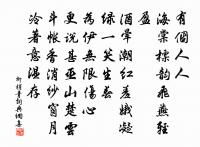 有個人人
海棠標韻飛燕輕
盈
酒暈潮紅羞蛾凝
綠一笑生春
為伊無限傷心
更說甚巫山楚雲
斗帳香消紗窗月
冷著意溫存